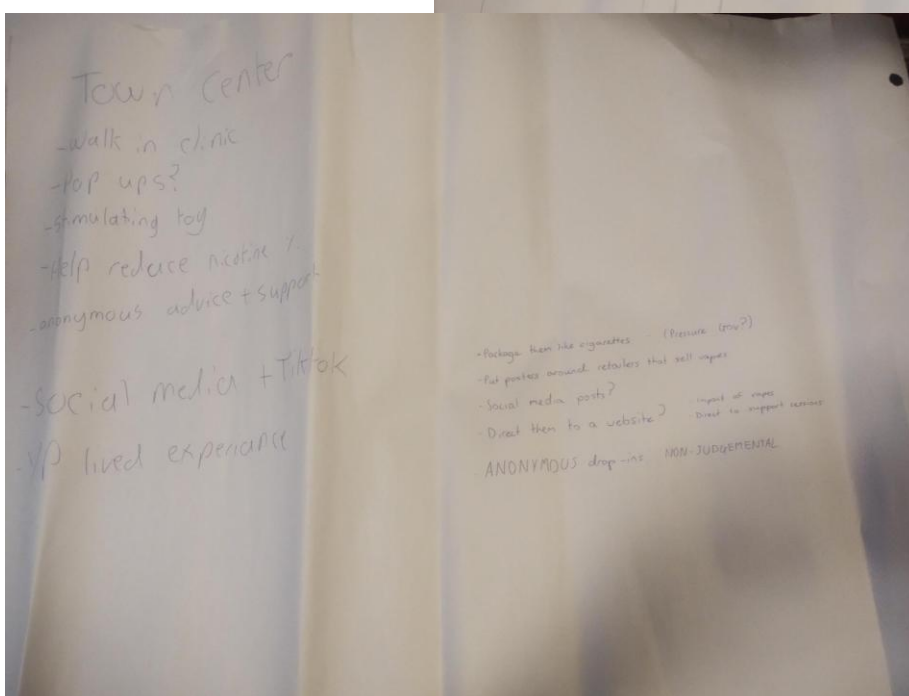 Town Center
-walk in clinic
-Pop ups?
-stimulating toy
-Help reduce nicotine %
-anonymous advice + support
-Social media + TikTok
-YP lived experiance
-Package them like cigarettes (Pressure Gov?)
-Put posters around retailers that sell vapes
-Social media posts?
-Direct them to a website? -impact of vapes
-Direct to support services
-ANONYMOUS drop-ins NON-JUDGEMENTAL